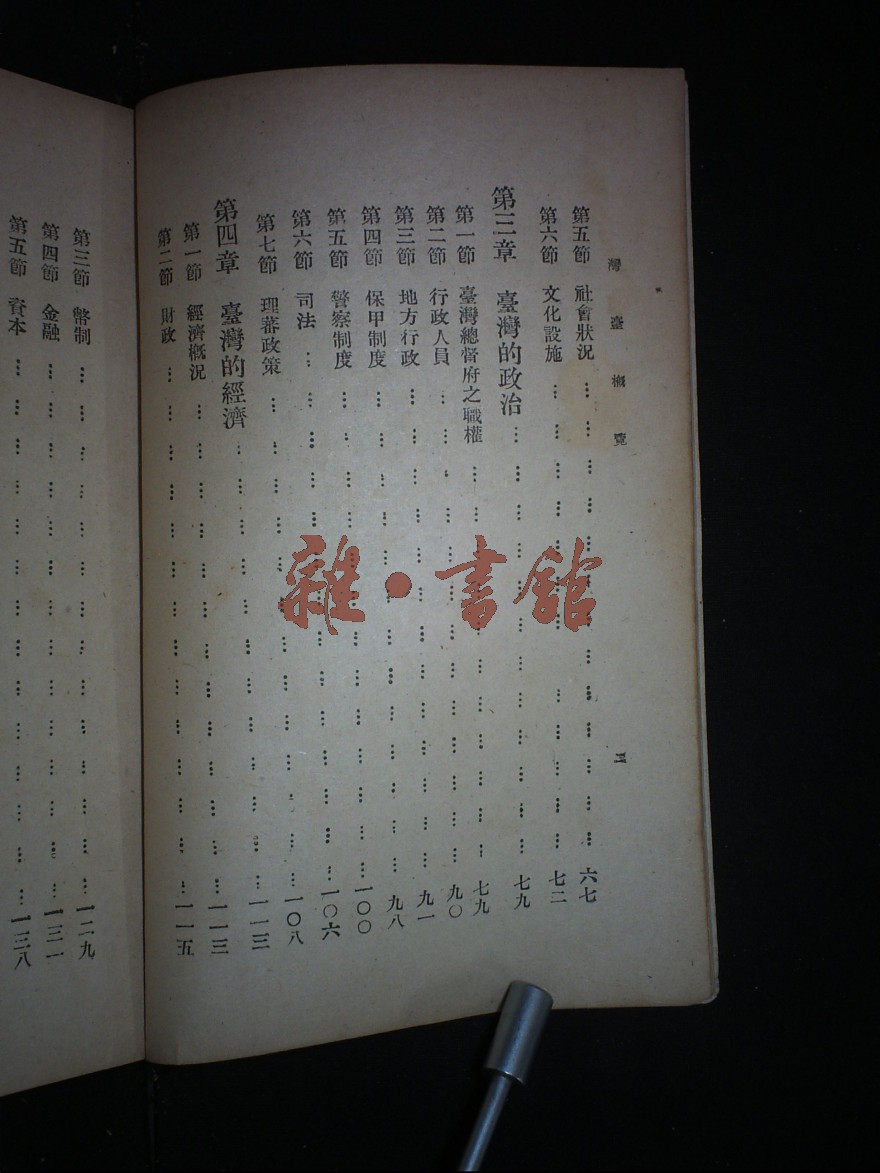 灣臺概覽
第五節 社會狀況 … … … … … … … … … … … 六七
第六節 文化設施 … … … … … … … … … … … 七二
第三章 臺灣的政治 … … … … … … … … … … 七九
第一節 臺灣總督府之職權 … … … … … … … … … 七九
第二節 行政人員 … … … … … … … … … … … 九〇
第三節 地方行政 … … … … … … … … … … … 九一
第四節 保甲制度 … … … … … … … … … … … 九八
第五節 警察制度 … … … … … … … … … … … 一〇〇
第六節 司法 … … … … … … … … … … … … 一〇六
第七節 理蕃政策 … … … … … … … … … … … 一〇八
第四章 臺灣的經濟 … … … … … … … … … … 一一三
第一節 經濟概況 … … … … … … … … … … … 一一三
第二節 財政 … … … … … … … … … … … … 一一五
第三節 幣制 … … … … … … … … … … … … 一二九
第四節 金融 … … … … … … … … … … … … 一三一
第五節 資本 … … … … … … … … … … … … 一三八
雜·書館